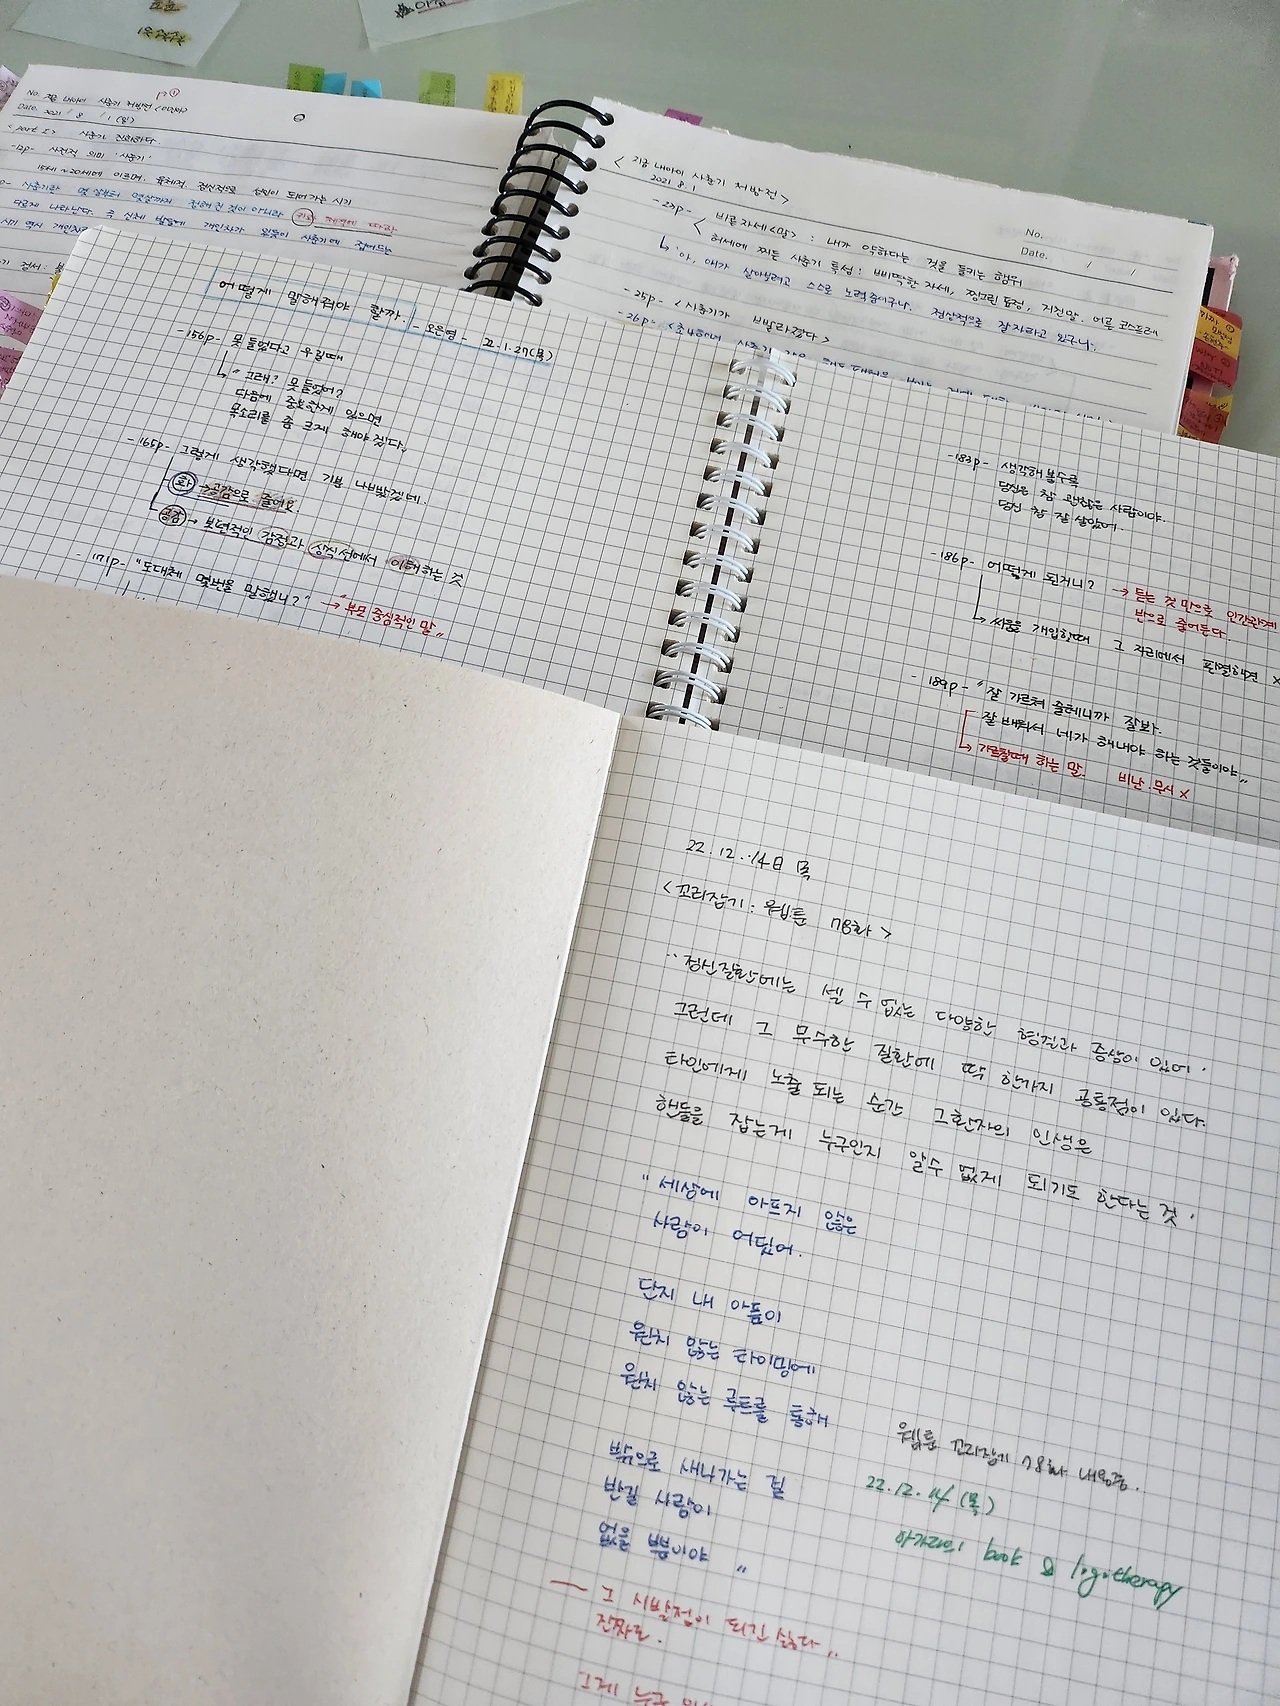 No. 지금 내아이 사춘기 처방전
Date. 2021 / 8 / 1 (일)
<part I> 사춘기 진화하다.
-12p- 사전적 의미 '사춘기'
15세~20세에 이르며, 육체적, 정신적으로 성인이 되어가는 시기
사춘기란 몇 살부터 몇살까지 정해진 것이 아니라
다르게 나타난다. 즉 신체 발달에 개인차가 있듯이 사춘기에 접어드는
시기 역시 개인차
< 지금 내아이 사춘기 처방전 >
2021. 8. 1
No.
Date. / /
-23p- < 비콘자세<말> : 내가 약하다는 것을 들키는 행위
허세에 찌든 사춘기 특성! 삐딱한 자세, 찡그린 표정, 거짓말. 어른 코스프레
↳ '아, 얘가 살아보려고 스스로 노력중이구나. 정상적으로 잘 자라고 있구나.
-25p- <사춘기가 빨라졌다>
-26p- <초4
어떻게 말해줘야 할까. - 오은영 - 22.1.27(목)
-156p- 못 들었다고 우길때
↳ "그래? 못 들었어?
다음에 중요한게 있으면
목소리를 좀 크게 해야 겠다"
-165p- 그렇게 생각했다면 기분 나빴겠네.
화 → 공감으로 줄여요.
공감 → 보편적인 감정과 상식선에서 이해하는 것
- 171p- "도대체 몇번을 말했니?" → "부모 중심적인 말"
-183p- 생각해 볼수록
당신은 참 괜찮은 사람이야.
당신 참 잘 살았어.
-186p- 어떻게 된거니? → 듣는 것 만으로 인간관계
반으로 줄어든다.
↳ 싸움을 개입할때 그 자리에서 판결하면 X
- 189p- "잘 가르쳐 줄테니까 잘봐.
잘 배워서 네가 해내야 하는 것들이야"
↳ 가르칠때 하는 말. 비난. 무시 X
22. 12. 14日 목
<꼬리잡기 : 웹툰 78화 >
정신질환에는 셀 수 없는 다양한 형질과 증상이 있어.
그런데 그 무수한 질환에 딱 한가지 공통점이 있다.
타인에게 노출 되는 순간 그환자의 인생은
핸들을 잡는게 누구인지 알수 없게 되기도 한다는 것.
" 세상에 아프지 않은
사람이 어딨어.
단지 내 아픔이
원치 않는 타이밍에
원치 않는 루트를 통해
밖으로 새나가는 걸
반길 사람이
없을 뿐이야 "
웹툰 꼬리잡기 78화 내용중.
22. 12. 14 (목)
book & logotherapy
— 그 시발점이 되긴 싫다..
진짜로.
그게 누구